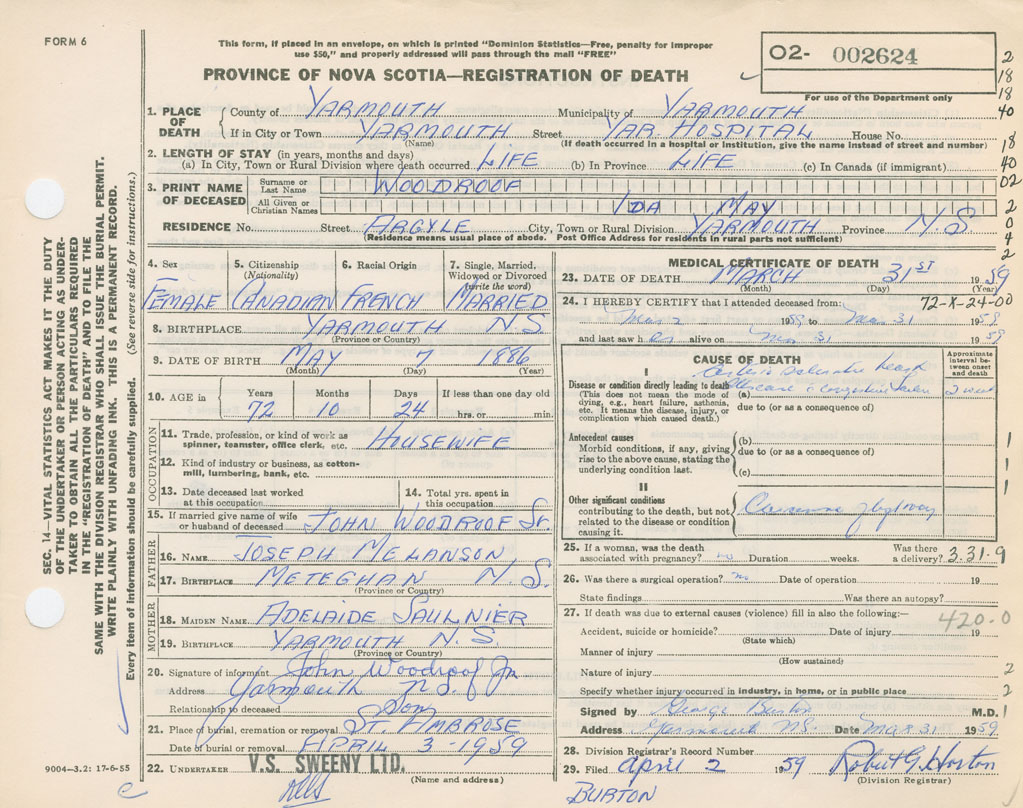 FORM 6
This form, if placed in an envelope, on which is printed "Dominion Statistics—Free, penalty for improper
use $50," and properly addressed will pass through the mail "FREE"
PROVINCE OF NOVA SCOTIA—REGISTRATION OF DEATH
02- 002624
For use of the Department only
SEC. 14—VITAL STATISTICS ACT MAKES IT THE DUTY
OF THE UNDERTAKER OR PERSON ACTING AS UNDER-
TAKER TO OBTAIN ALL THE PARTICULARS REQUIRED
IN THE "REGISTRATION OF DEATH" AND TO FILE THE
SAME WITH THE DIVISION REGISTRAR WHO SHALL ISSUE THE BURIAL PERMIT.
WRITE PLAINLY WITH UNFADING INK. THIS IS A PERMANENT RECORD.
Every item of information should be carefully supplied. (See reverse side for instructions.)
1. PLACE OF DEATH
County of YARMOUTH Municipality of YARMOUTH
If in City or Town YARMOUTH Street YAR HOSPITAL House No.
(Name) (If death occurred in a hospital or institution, give the name instead of street and number)
2. LENGTH OF STAY (in years, months and days)
(a) In City, Town or Rural Division where death occurred LIFE (b) In Province LIFE (c) In Canada (if immigrant)
3. PRINT NAME OF DECEASED
Surname or Last Name WOODROOF
All Given or Christian Names IDA MAY
RESIDENCE No. Street ARGYLE City, Town or Rural Division YARMOUTH Province N.S
(Residence means usual place of abode. Post Office Address for residents in rural parts not sufficient)
4. Sex 5. Citizenship (Nationality) 6. Racial Origin 7. Single, Married, Widowed or Divorced (write the word)
FEMALE CANADIAN FRENCH MARRIED
8. BIRTHPLACE YARMOUTH N S
(Province or Country)
9. DATE OF BIRTH MAY 7 1886
(Month) (Day) (Year)
10. AGE in Years Months Days If less than one day old
72 10 24 hrs. or min.
OCCUPATION
11. Trade, profession, or kind of work as spinner, teamster, office clerk, etc. HOUSEWIFE
12. Kind of industry or business, as cotton-mill, lumbering, bank, etc.
13. Date deceased last worked at this occupation
14. Total yrs. spent in this occupation
15. If married give name of wife or husband of deceased JOHN WOODROOF Sr.
FATHER
16. NAME JOSEPH MELANSON
17. BIRTHPLACE METEGHAN N.S.
(Province or Country)
MOTHER
18. MAIDEN NAME ADELAIDE SAULNIER
19. BIRTHPLACE YARMOUTH N.S.
(Province or Country)
20. Signature of informant John Woodroof Jr.
Address Yarmouth N.S.
Relationship to deceased Son
21. Place of burial, cremation or removal ST. AMBROSE
Date of burial or removal APRIL 3-1959
22. UNDERTAKER V.S. SWEENY LTD.
(Name and address)
9004—3.2: 17-6-55
MEDICAL CERTIFICATE OF DEATH
23. DATE OF DEATH MARCH 31ST 1959
(Month) (Day) (Year)
24. I HEREBY CERTIFY that I attended deceased from: 72-X-24-00
Mar 2 1959 to Mar 31 1959
and last saw her alive on Mar 31 1959
CAUSE OF DEATH
Approximate interval between onset and death
I
Disease or condition directly leading to death
(This does not mean the mode of dying, e.g., heart failure, asthenia, etc. It means the disease, injury, or complication which caused death.)
(a) heart disease 2 weeks
due to (or as a consequence of)
Antecedent causes
Morbid conditions, if any, giving rise to the above cause, stating the underlying condition last.
(b)
due to (or as a consequence of)
(c)
II
Other significant conditions
contributing to the death, but not related to the disease or condition causing it.
25. If a woman, was the death associated with pregnancy? no Duration weeks. Was there a delivery? 3.31.9
26. Was there a surgical operation? no Date of operation 19
State findings Was there an autopsy?
27. If death was due to external causes (violence) fill in also the following:—
420.0
Accident, suicide or homicide? Date of injury 19
(State which)
Manner of injury
(How sustained)
Nature of injury
Specify whether injury occurred in industry, in home, or in public place
Signed by George Burton M.D.
Address Yarmouth N.S. Date Mar 31 1959.
28. Division Registrar's Record Number
29. Filed April 2 1959 Robert G. Horton
(Division Registrar)
BURTON
2
18
18
40
18
40
02
2
0
4
2
1
1
1
2
2
1